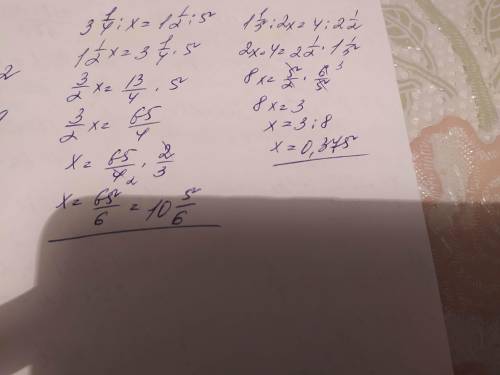 3 1/4 : x = 1 1/2 : 5
1 1/2 x = 3 1/4 · 5
3/2 x = 13/4 · 5
3/2 x = 65/4
x = 65/4 2 · 2/3
x = 65/6 = 10 5/6
1 1/5 : 2x = 4 : 2 1/2
2x · 4 = 2 1/2 · 1 1/5
8x = 5/2 · 6/5 3
8x = 3
x = 3 : 8
x = 0,375
2